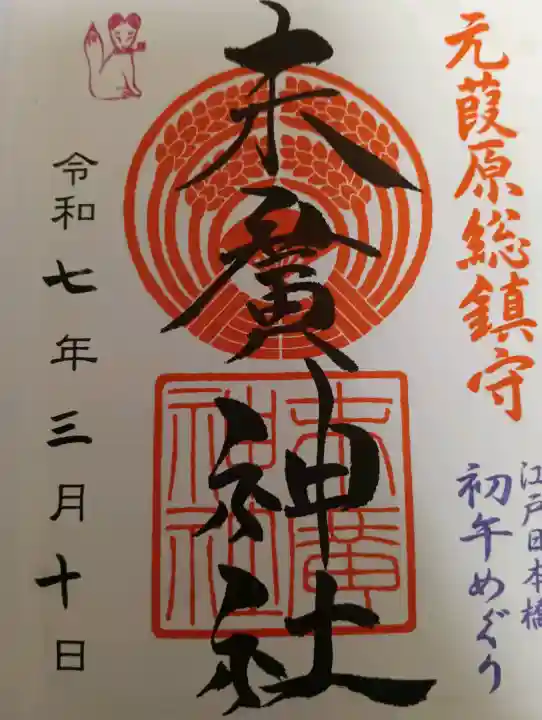 元葭原総鎮守
江戸日本橋
初午めぐり
末廣神社
末廣
神社
令和七年三月十日